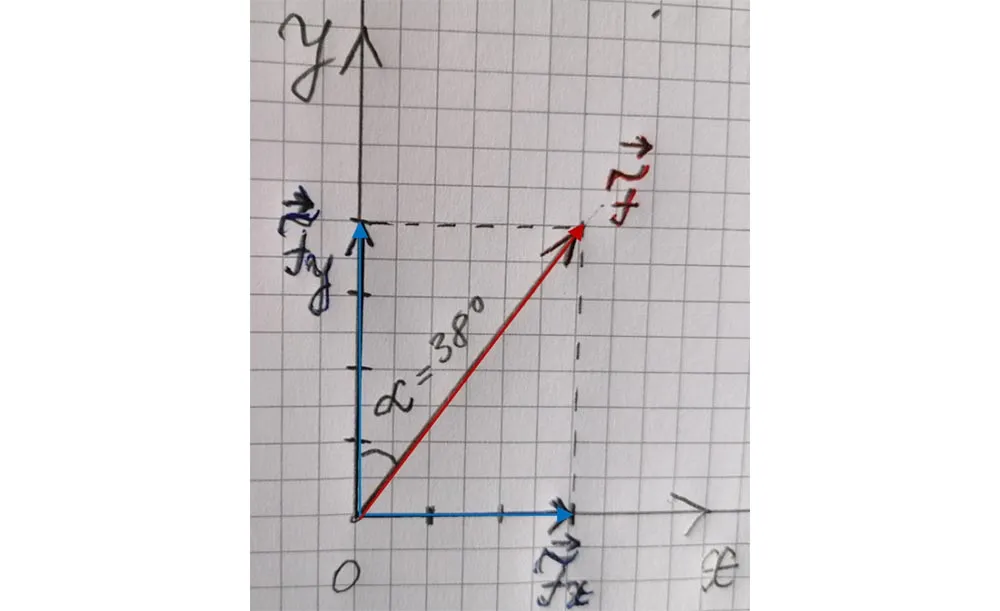 y
f⃗
f⃗y
α = 38°
0
f⃗x
x